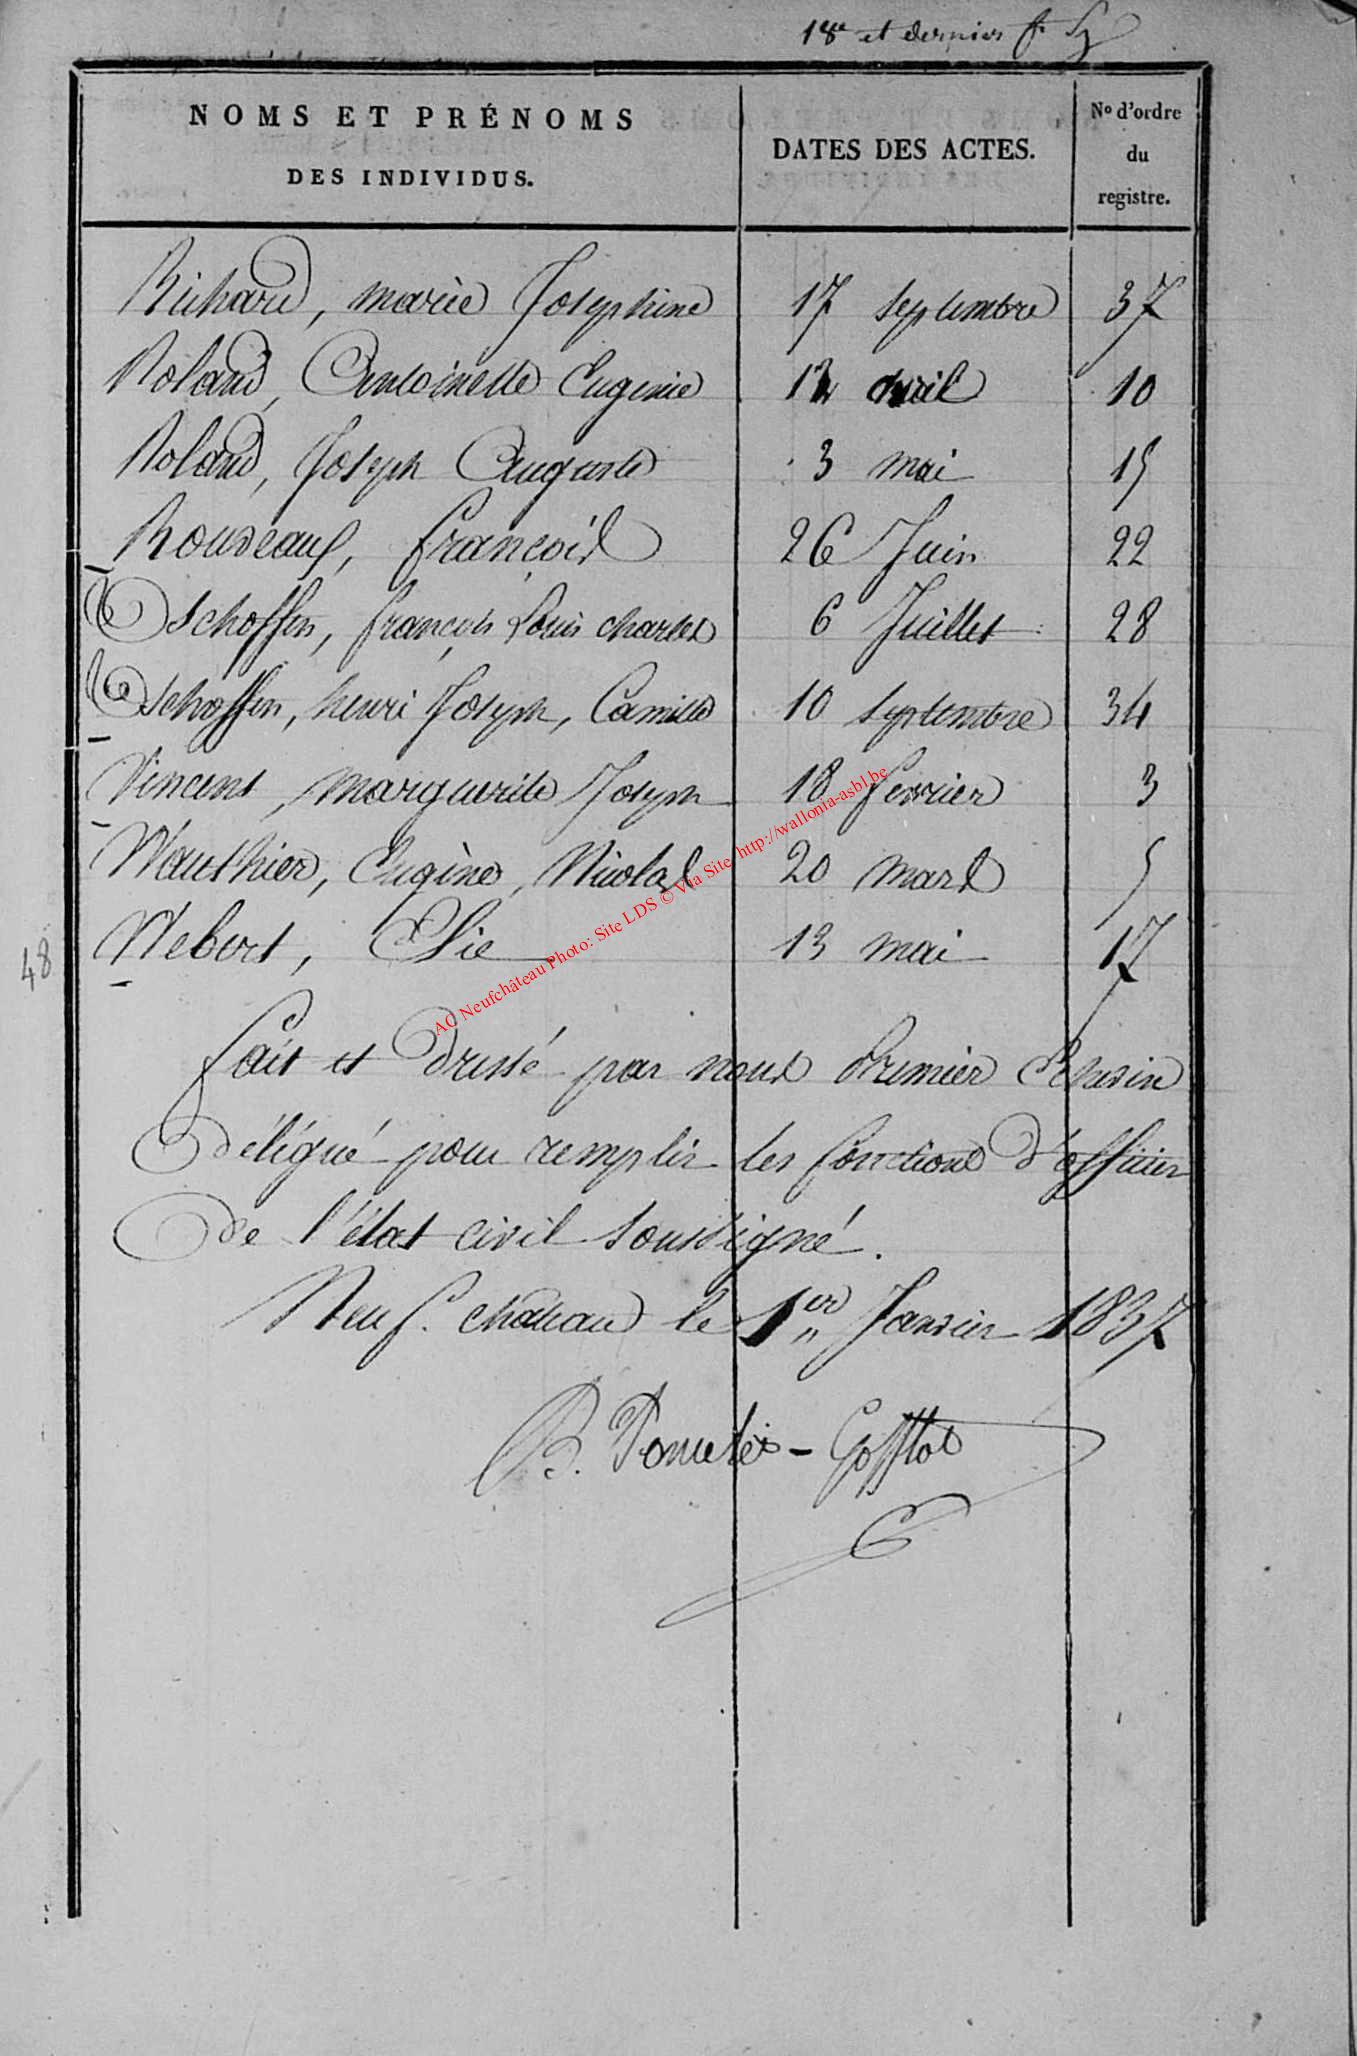 18e et dernier f.
NOMS ET PRÉNOMS
DES INDIVIDUS.
DATES DES ACTES.
No d'ordre
du
registre.
Richard, marie Josephine 17 septembre 37
Roland, Antoinette Eugenie avril 10
Roland, Joseph Auguste 3 mai 15
Rousseaux, françois 26 Juin 22
Tschoffen, françois Louis charles 6 Juillet 28
Tschoffen, henri Joseph, Camille 10 septembre 34
Vincent, marguerite Joseph 18 fevrier 3
Wauthier, Eugène, Nicolas 20 mars 5
Webert, Elie 13 mai 17
48
fait et dressé par nous Premier Echevin
délégué pour remplir les fonctions d'officier
de l'état civil soussigné.
Neuf-chateau le 1er Janvier 1837
B.
AC Neufchâteau Photo: Site LDS © Via Site http://wallonia-asbl.be